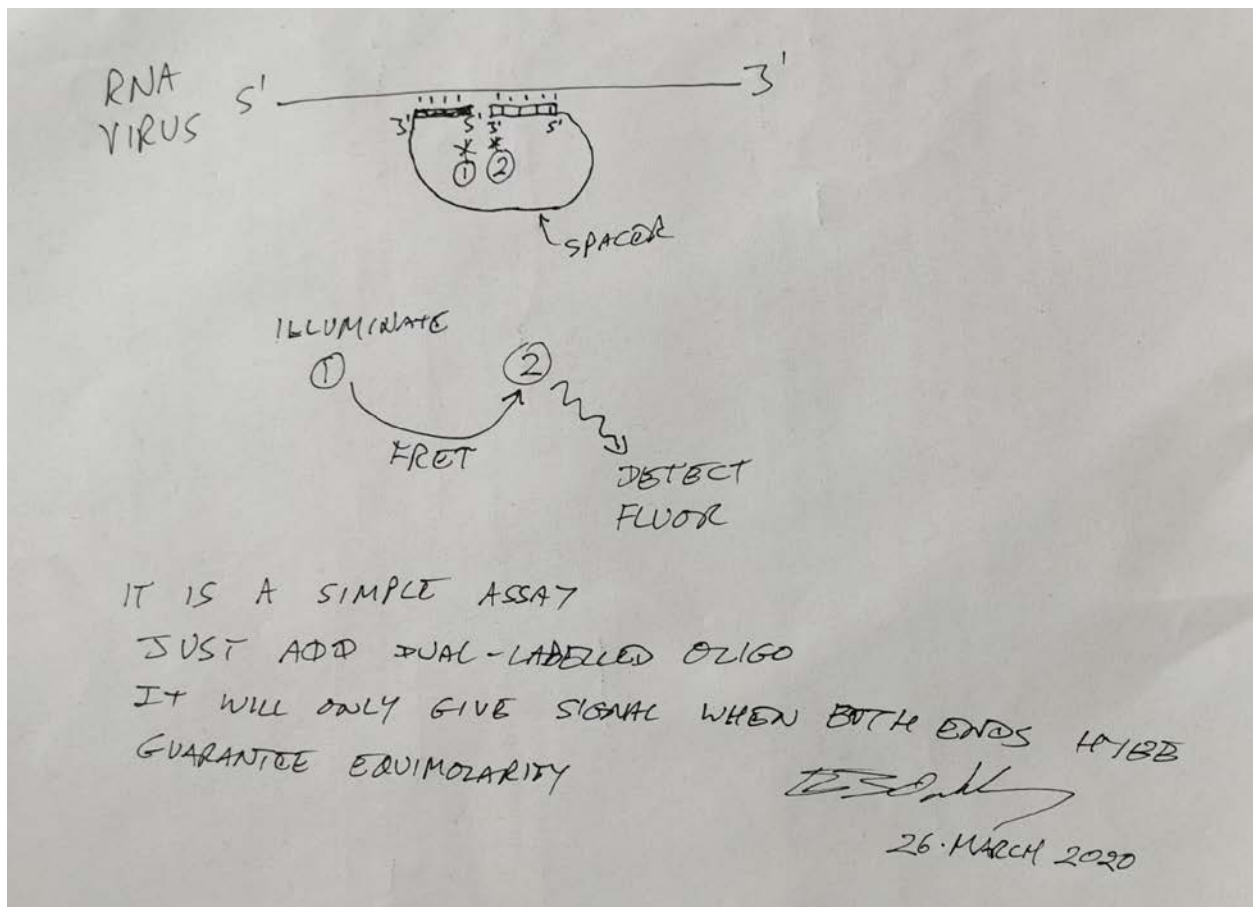 RNA
VIRUS
5'
3'
3'
5'
3'
5'
1
2
SPACER
ILLUMINATE
1
2
FRET
DETECT
FLUOR
IT IS A SIMPLE ASSAY
JUST ADD DUAL-LABELLED OLIGO
IT WILL ONLY GIVE SIGNAL WHEN BOTH ENDS HYBB
GUARANTEE EQUIMOLARITY
26.MARCH 2020